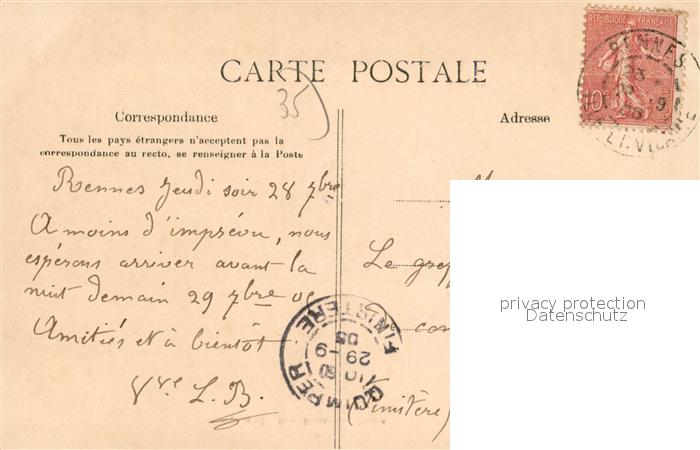 CARTE POSTALE
35
Correspondance
Tous les pays étrangers n'acceptent pas la
correspondance au recto, se renseigner à la Poste
Rennes Jeudi soir 28 7bre
A moins d'imprévu, nous
espérons arriver avant la
nuit demain 29 7bre
Amitiés et à bientôt
L. B.
Adresse
REPUBLIQUE FRANÇAISE
10c
RENNES
QUIMPER
29-9
05
FINISTERE
Le
(Finistère)
privacy protection
Datenschutz